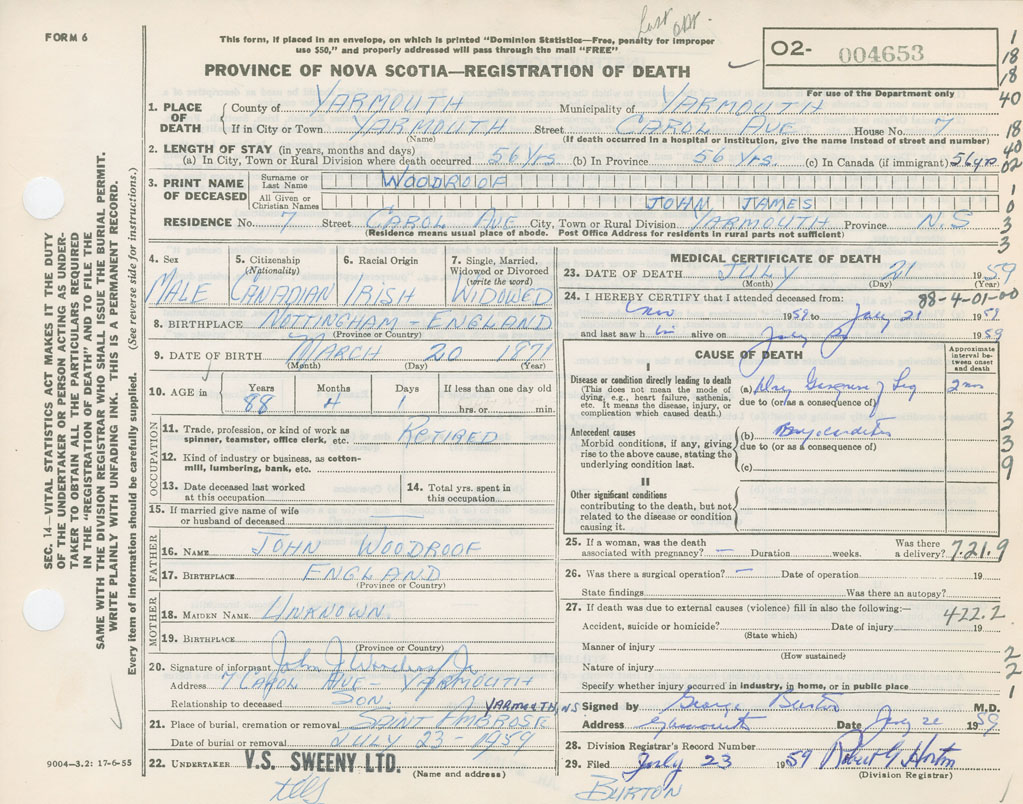 FORM 6
This form, if placed in an envelope, on which is printed "Dominion Statistics—Free, penalty for improper
use $50," and properly addressed will pass through the mail "FREE"
PROVINCE OF NOVA SCOTIA—REGISTRATION OF DEATH
O2- 004653
For use of the Department only
1
18
18
40
18
40
02
0
3
3
SEC. 14—VITAL STATISTICS ACT MAKES IT THE DUTY
OF THE UNDERTAKER OR PERSON ACTING AS UNDER-
TAKER TO OBTAIN ALL THE PARTICULARS REQUIRED
IN THE "REGISTRATION OF DEATH" AND TO FILE THE
SAME WITH THE DIVISION REGISTRAR WHO SHALL ISSUE THE BURIAL PERMIT.
WRITE PLAINLY WITH UNFADING INK. THIS IS A PERMANENT RECORD.
Every item of information should be carefully supplied. (See reverse side for instructions.)
1. PLACE OF DEATH County of YARMOUTH Municipality of YARMOUTH
If in City or Town YARMOUTH Street CAROL AVE House No. 7
(Name) (If death occurred in a hospital or institution, give the name instead of street and number)
2. LENGTH OF STAY (in years, months and days)
(a) In City, Town or Rural Division where death occurred 56 Yrs. (b) In Province 56 Yrs. (c) In Canada (if immigrant) 56 yrs
3. PRINT NAME OF DECEASED Surname or Last Name WOODROOF
All Given or Christian Names JOHN JAMES
RESIDENCE No. 7 Street CAROL AVE City, Town or Rural Division YARMOUTH Province N.S
(Residence means usual place of abode. Post Office Address for residents in rural parts not sufficient)
4. Sex MALE
5. Citizenship (Nationality) CANADIAN
6. Racial Origin IRISH
7. Single, Married, Widowed or Divorced (write the word) WIDOWED
8. BIRTHPLACE NOTTINGHAM - ENGLAND
(Province or Country)
9. DATE OF BIRTH MARCH 20 1871
(Month) (Day) (Year)
10. AGE in Years 88 Months 4 Days 1 If less than one day old hrs. or min.
OCCUPATION
11. Trade, profession, or kind of work as spinner, teamster, office clerk, etc. RETIRED
12. Kind of industry or business, as cotton-mill, lumbering, bank, etc.
13. Date deceased last worked at this occupation
14. Total yrs. spent in this occupation
15. If married give name of wife or husband of deceased —
FATHER
16. NAME JOHN WOODROOF
17. BIRTHPLACE ENGLAND
(Province or Country)
MOTHER
18. MAIDEN NAME UNKNOWN.
19. BIRTHPLACE
(Province or Country)
20. Signature of informant John J
Address 7 CAROL AVE - YARMOUTH
Relationship to deceased SON.
21. Place of burial, cremation or removal SAINT AMBROSE YARMOUTH, NS
Date of burial or removal JULY 23 - 1959
22. UNDERTAKER V.S. SWEENY LTD.
(Name and address)
9004—3.2: 17-6-55
MEDICAL CERTIFICATE OF DEATH
23. DATE OF DEATH JULY 21 1959
(Month) (Day) (Year)
88-4-01-00
24. I HEREBY CERTIFY that I attended deceased from:
1959 to July 21 1959
and last saw h alive on July 1959
CAUSE OF DEATH
Approximate interval between onset and death
I
Disease or condition directly leading to death
(This does not mean the mode of dying, e.g., heart failure, asthenia, etc. It means the disease, injury, or complication which caused death.)
(a) Dry Gangrene of Leg 2 mos
due to (or as a consequence of)
Antecedent causes
Morbid conditions, if any, giving rise to the above cause, stating the underlying condition last.
(b)
due to (or as a consequence of)
(c)
II
Other significant conditions
contributing to the death, but not related to the disease or condition causing it.
3
3
9
25. If a woman, was the death associated with pregnancy? — Duration weeks. Was there a delivery? 7.21.9
26. Was there a surgical operation? — Date of operation 19
State findings Was there an autopsy?
27. If death was due to external causes (violence) fill in also the following:— 422.2
Accident, suicide or homicide? Date of injury 19
(State which)
Manner of injury
(How sustained)
Nature of injury
Specify whether injury occurred in industry, in home, or in public place
2
2
1
Signed by George Burton M.D.
Address Yarmouth Date July 22 1959
28. Division Registrar's Record Number
29. Filed July 23 1959 Robert G Horton
(Division Registrar)
BURTON